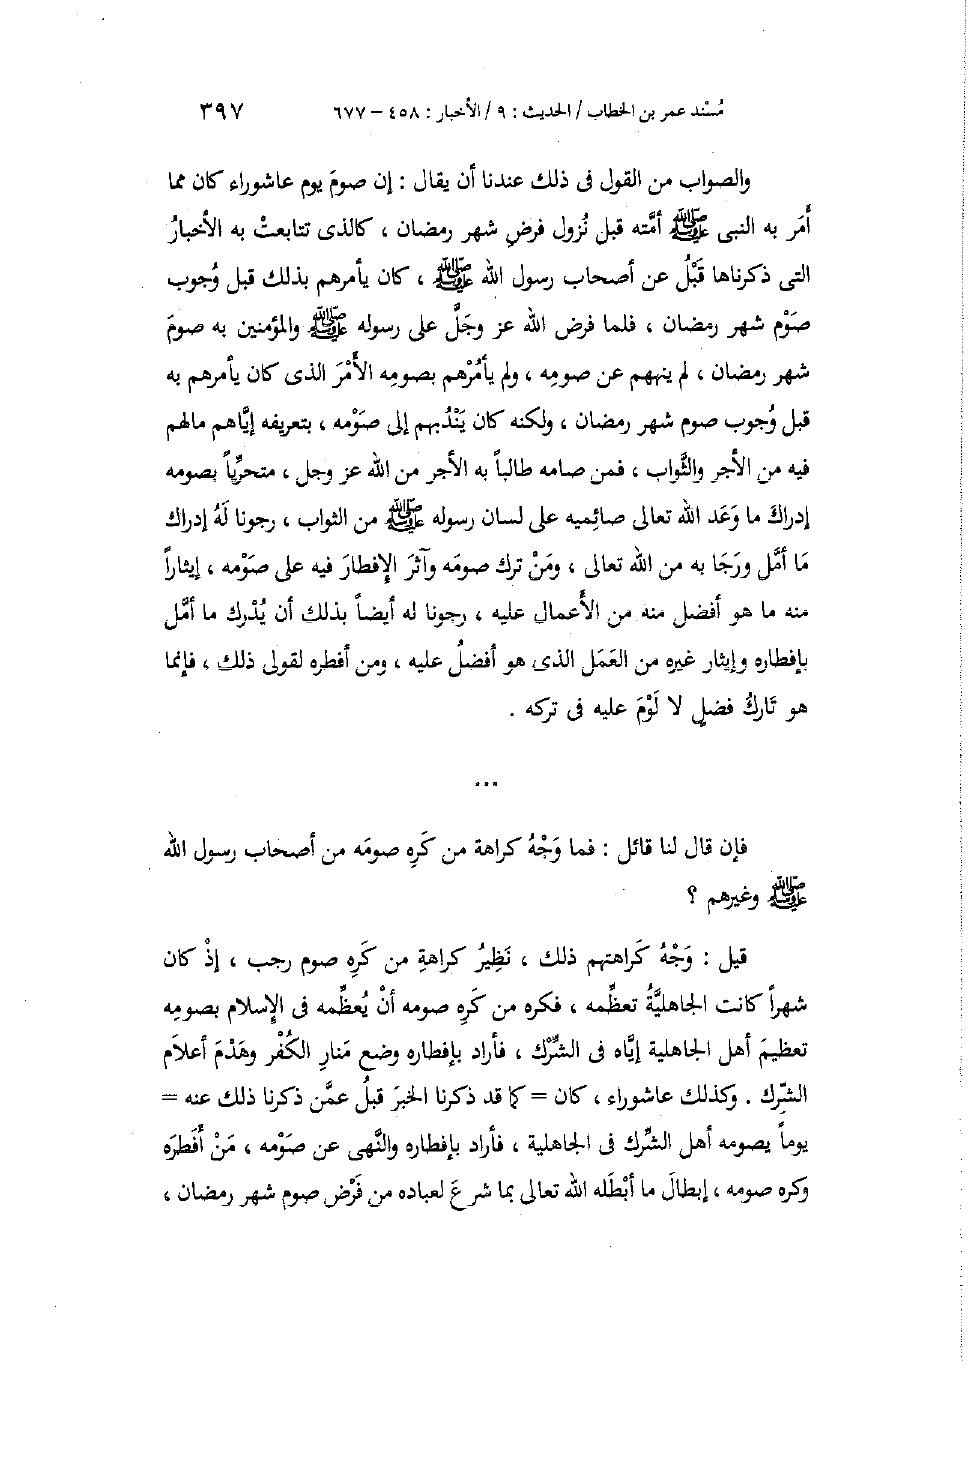 مُسْند عمر بن الخطاب / الحديث : ٩ / الأخبار : ٤٥٨ – ٦٧٧ ٣٩٧
والصواب من القول فى ذلك عندنا أن يقال : إن صومَ يوم عاشوراء كان مما
أَمَر به النبى ﷺ أمَّته قبل نُزول فرضِ شهر رمضان ، كالذى تتابعتْ به الأخبارُ
التى ذكرناها قَبْلُ عن أصحاب رسول الله ﷺ ، كان يأمرهم بذلك قبل وُجوب
صَوْم شهر رمضان ، فلما فرض الله عز وجَلَّ على رسوله ﷺ والمؤمنين به صومَ
شهر رمضان ، لم ينههم عن صومِه ، ولم يأمُرْهم بصومِه الأَمْرَ الذى كان يأمرهم به
قبل وُجوب صوم شهر رمضان ، ولكنه كان يَنْدُبهم إلى صَوْمه ، بتعريفه إيَّاهم مالهم
فيه من الأجر والثَّواب ، فمن صامه طالباً به الأجر من الله عز وجل ، متحرِّياً بصومه
إدراكَ ما وَعَد الله تعالى صائِميه على لسان رسوله ﷺ من الثواب ، رجونا لَهُ إدراك
مَا أمَّل ورَجَا به من الله تعالى ، ومَنْ ترك صومَه وآثرَ الإفطارَ فيه على صَوْمه ، إيثاراً
منه ما هو أفضل منه من الأَعمال عليه ، رجونا له أيضاً بذلك أن يُدْرك ما أمَّل
بإفطاره وإيثار غيره من العَمَل الذى هو أفضلُ عليه ، ومن أفطره لقولى ذلك ، فإنما
هو تَاركُ فضلٍ لا لَوْمَ عليه فى تركه .
...
فإن قال لنا قائل : فما وَجْهُ كراهة من كَرِه صومَه من أصحاب رسول الله
ﷺ وغيرهم ؟
قيل : وَجْهُ كَراهتهم ذلك ، نَظِيرُ كراهةِ من كَرِه صوم رجب ، إذْ كان
شهراً كانت الجاهليَّةُ تعظِّمه ، فكره من كَرِه صومه أنْ يُعظِّمه فى الإسلام بصومِه
تعظيمَ أهل الجاهلية إيَّاه فى الشِّرْك ، فأراد بإفطاره وضع مَنارِ الكُفْر وهَدْمَ أعلاَم
الشِّرك . وكذلك عاشوراء ، كان = كما قد ذكرنا الخبرَ قبلُ عمَّن ذكرنا ذلك عنه =
يوماً يصومه أهل الشِّرك فى الجاهلية ، فأراد بإفطاره والنَّهى عن صَوْمه ، مَنْ أَفطَرَه
وكره صومه ، إبطالَ ما أبْطَله الله تعالى بما شرعَ لعباده من فَرْض صوم شهر رمضان ،